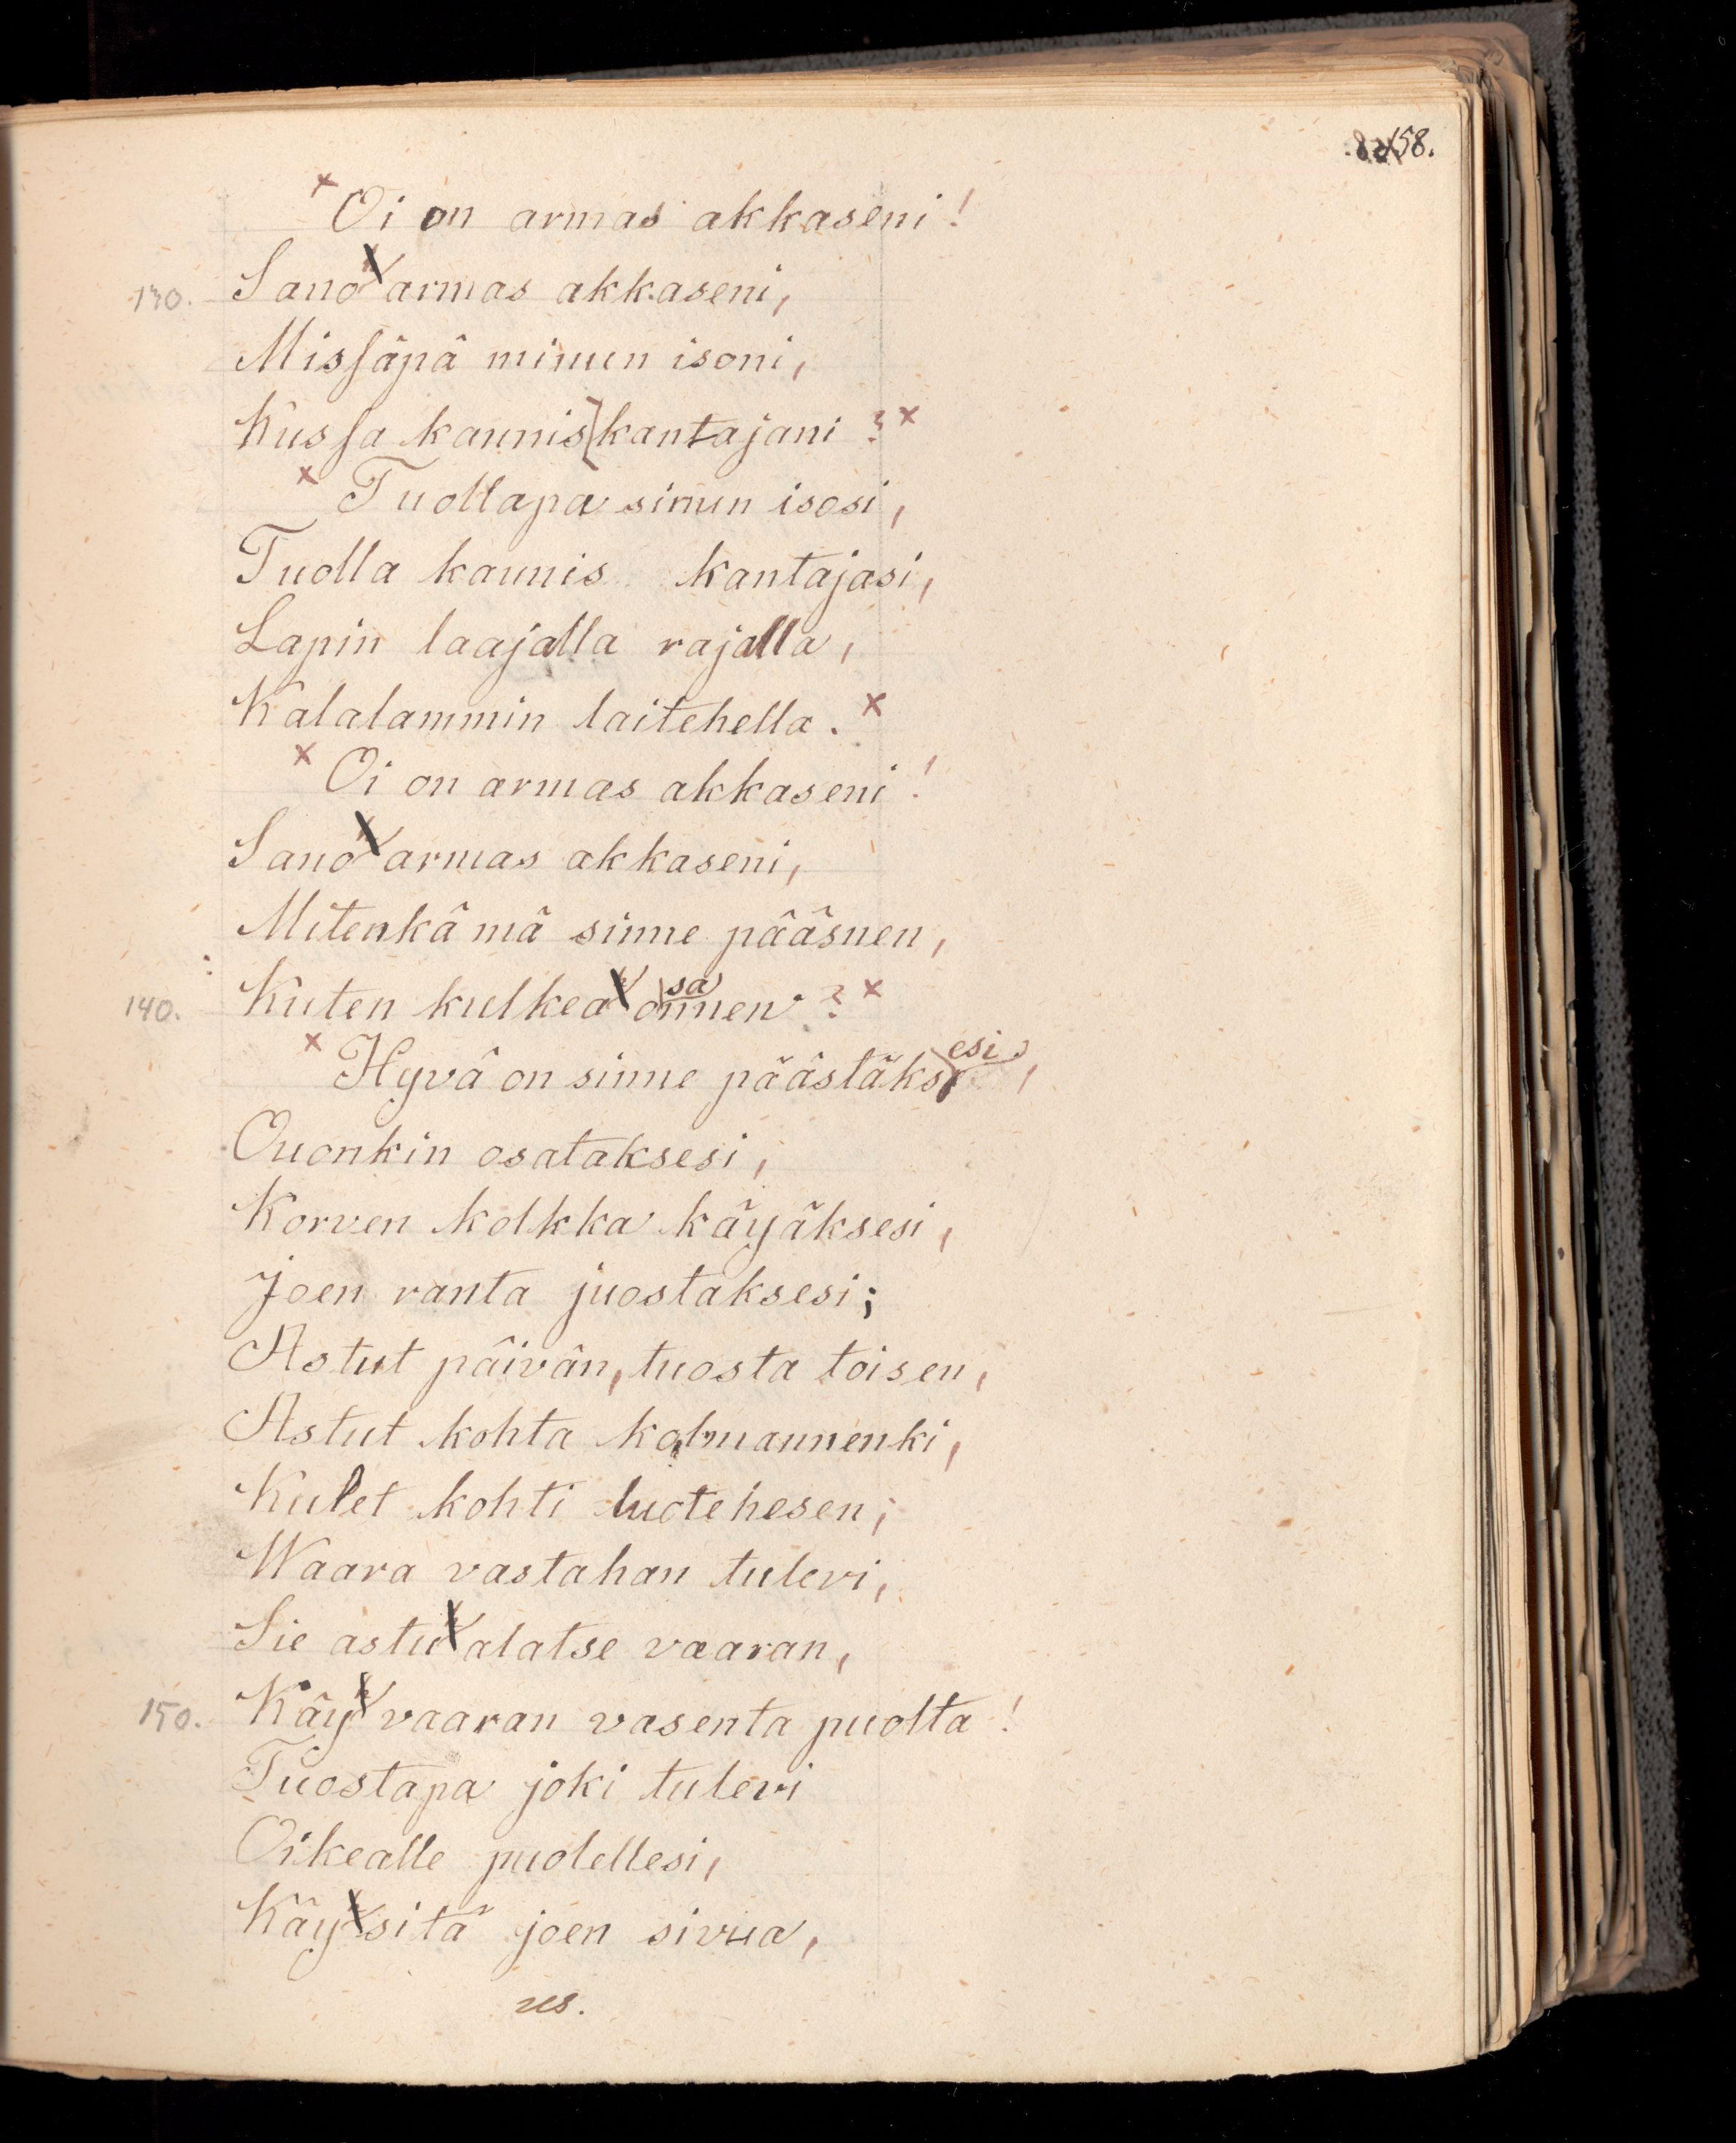 158.
Oi on armas akkaseni!
130. Sano armas akkaseni,
Missäpä minun isoni,
Kussa kaunis kantajani?
Tuollapa sinun isosi,
Tuolla kaunis kantajasi,
Lapin laajalla rajalla,
Kalalammin laitehella.
Oi on armas akkaseni!
Sano armas akkaseni,
Mitenkä mä sinne pääsnen,
140. Kuten kulkea osannen?
Hyvä on sinne päästäksesi,
Ouonkin osataksesi,
Korven kolkka käyäksesi,
Joen ranta juostaksesi;
Astut päivän, tuosta toisen,
Astut kohta kolmannenki,
Kulet kohti luotehesen;
Waara vastahan tulevi,
Sie astu alatse vaaran,
150. Käy vaaran vasenta puolta!
Tuostapa joki tulevi
Oikealle puolellesi,
Käy sitä joen sivua,